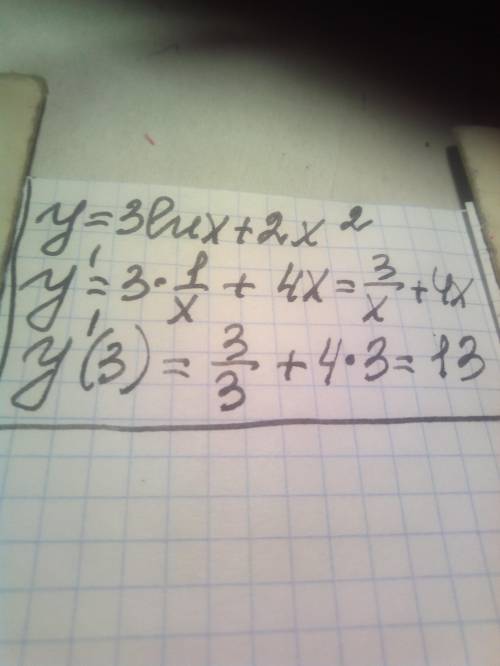 y=3lnx+2x²
y'=3·1/x + 4x=3/x+4x
y'(3)=3/3+4·3=13